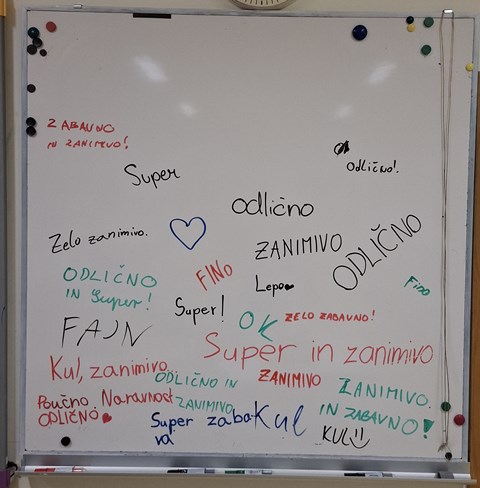 ZABAVNO
IN ZANIMIVO!
Odlično!
Super
Odlično
Zelo zanimivo.
ZANIMIVO
ODLIČNO
FINO
ODLIČNO
IN Super!
Lepo
Fino
Super!
OK
ZELO ZABAVNO!
FAJN
Super in zanimivo
Kul, zanimivo
ODLIČNO IN
ZANIMIVO
ZANIMIVO
ZANIMIVO.
IN ZABAVNO!
Poučno, Naravnost
ODLIČNO
Super zaba
va
Kul
KUL!!